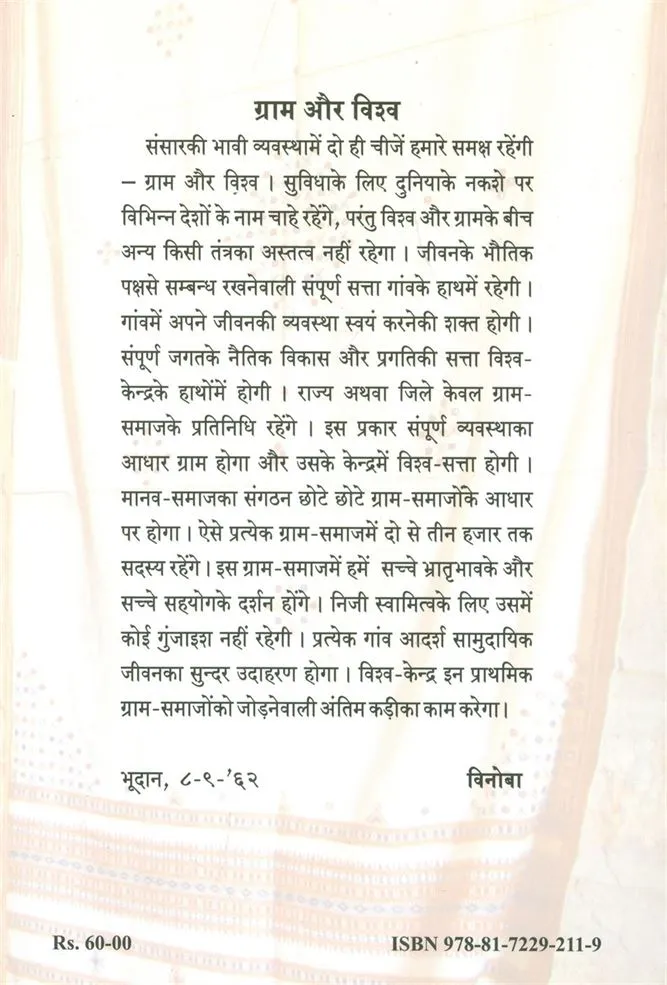 ग्राम और विश्व
संसारकी भावी व्यवस्थामें दो ही चीजें हमारे समक्ष रहेंगी
– ग्राम और विश्व । सुविधाके लिए दुनियाके नकशे पर
विभिन्न देशों के नाम चाहे रहेंगे, परंतु विश्व और ग्रामके बीच
अन्य किसी तंत्रका अस्तत्व नहीं रहेगा । जीवनके भौतिक
पक्षसे सम्बन्ध रखनेवाली संपूर्ण सत्ता गांवके हाथमें रहेगी ।
गांवमें अपने जीवनकी व्यवस्था स्वयं करनेकी शक्त होगी ।
संपूर्ण जगतके नैतिक विकास और प्रगतिकी सत्ता विश्व-
केन्द्रके हाथोंमें होगी । राज्य अथवा जिले केवल ग्राम-
समाजके प्रतिनिधि रहेंगे । इस प्रकार संपूर्ण व्यवस्थाका
आधार ग्राम होगा और उसके केन्द्रमें विश्व-सत्ता होगी ।
मानव-समाजका संगठन छोटे छोटे ग्राम-समाजोंके आधार
पर होगा । ऐसे प्रत्येक ग्राम-समाजमें दो से तीन हजार तक
सदस्य रहेंगे । इस ग्राम-समाजमें हमें सच्चे भ्रातृभावके और
सच्चे सहयोगके दर्शन होंगे । निजी स्वामित्वके लिए उसमें
कोई गुंजाइश नहीं रहेगी । प्रत्येक गांव आदर्श सामुदायिक
जीवनका सुन्दर उदाहरण होगा । विश्व-केन्द्र इन प्राथमिक
ग्राम-समाजोंको जोड़नेवाली अंतिम कड़ीका काम करेगा ।
भूदान, ८-९-'६२ विनोबा
Rs. 60-00 ISBN 978-81-7229-211-9